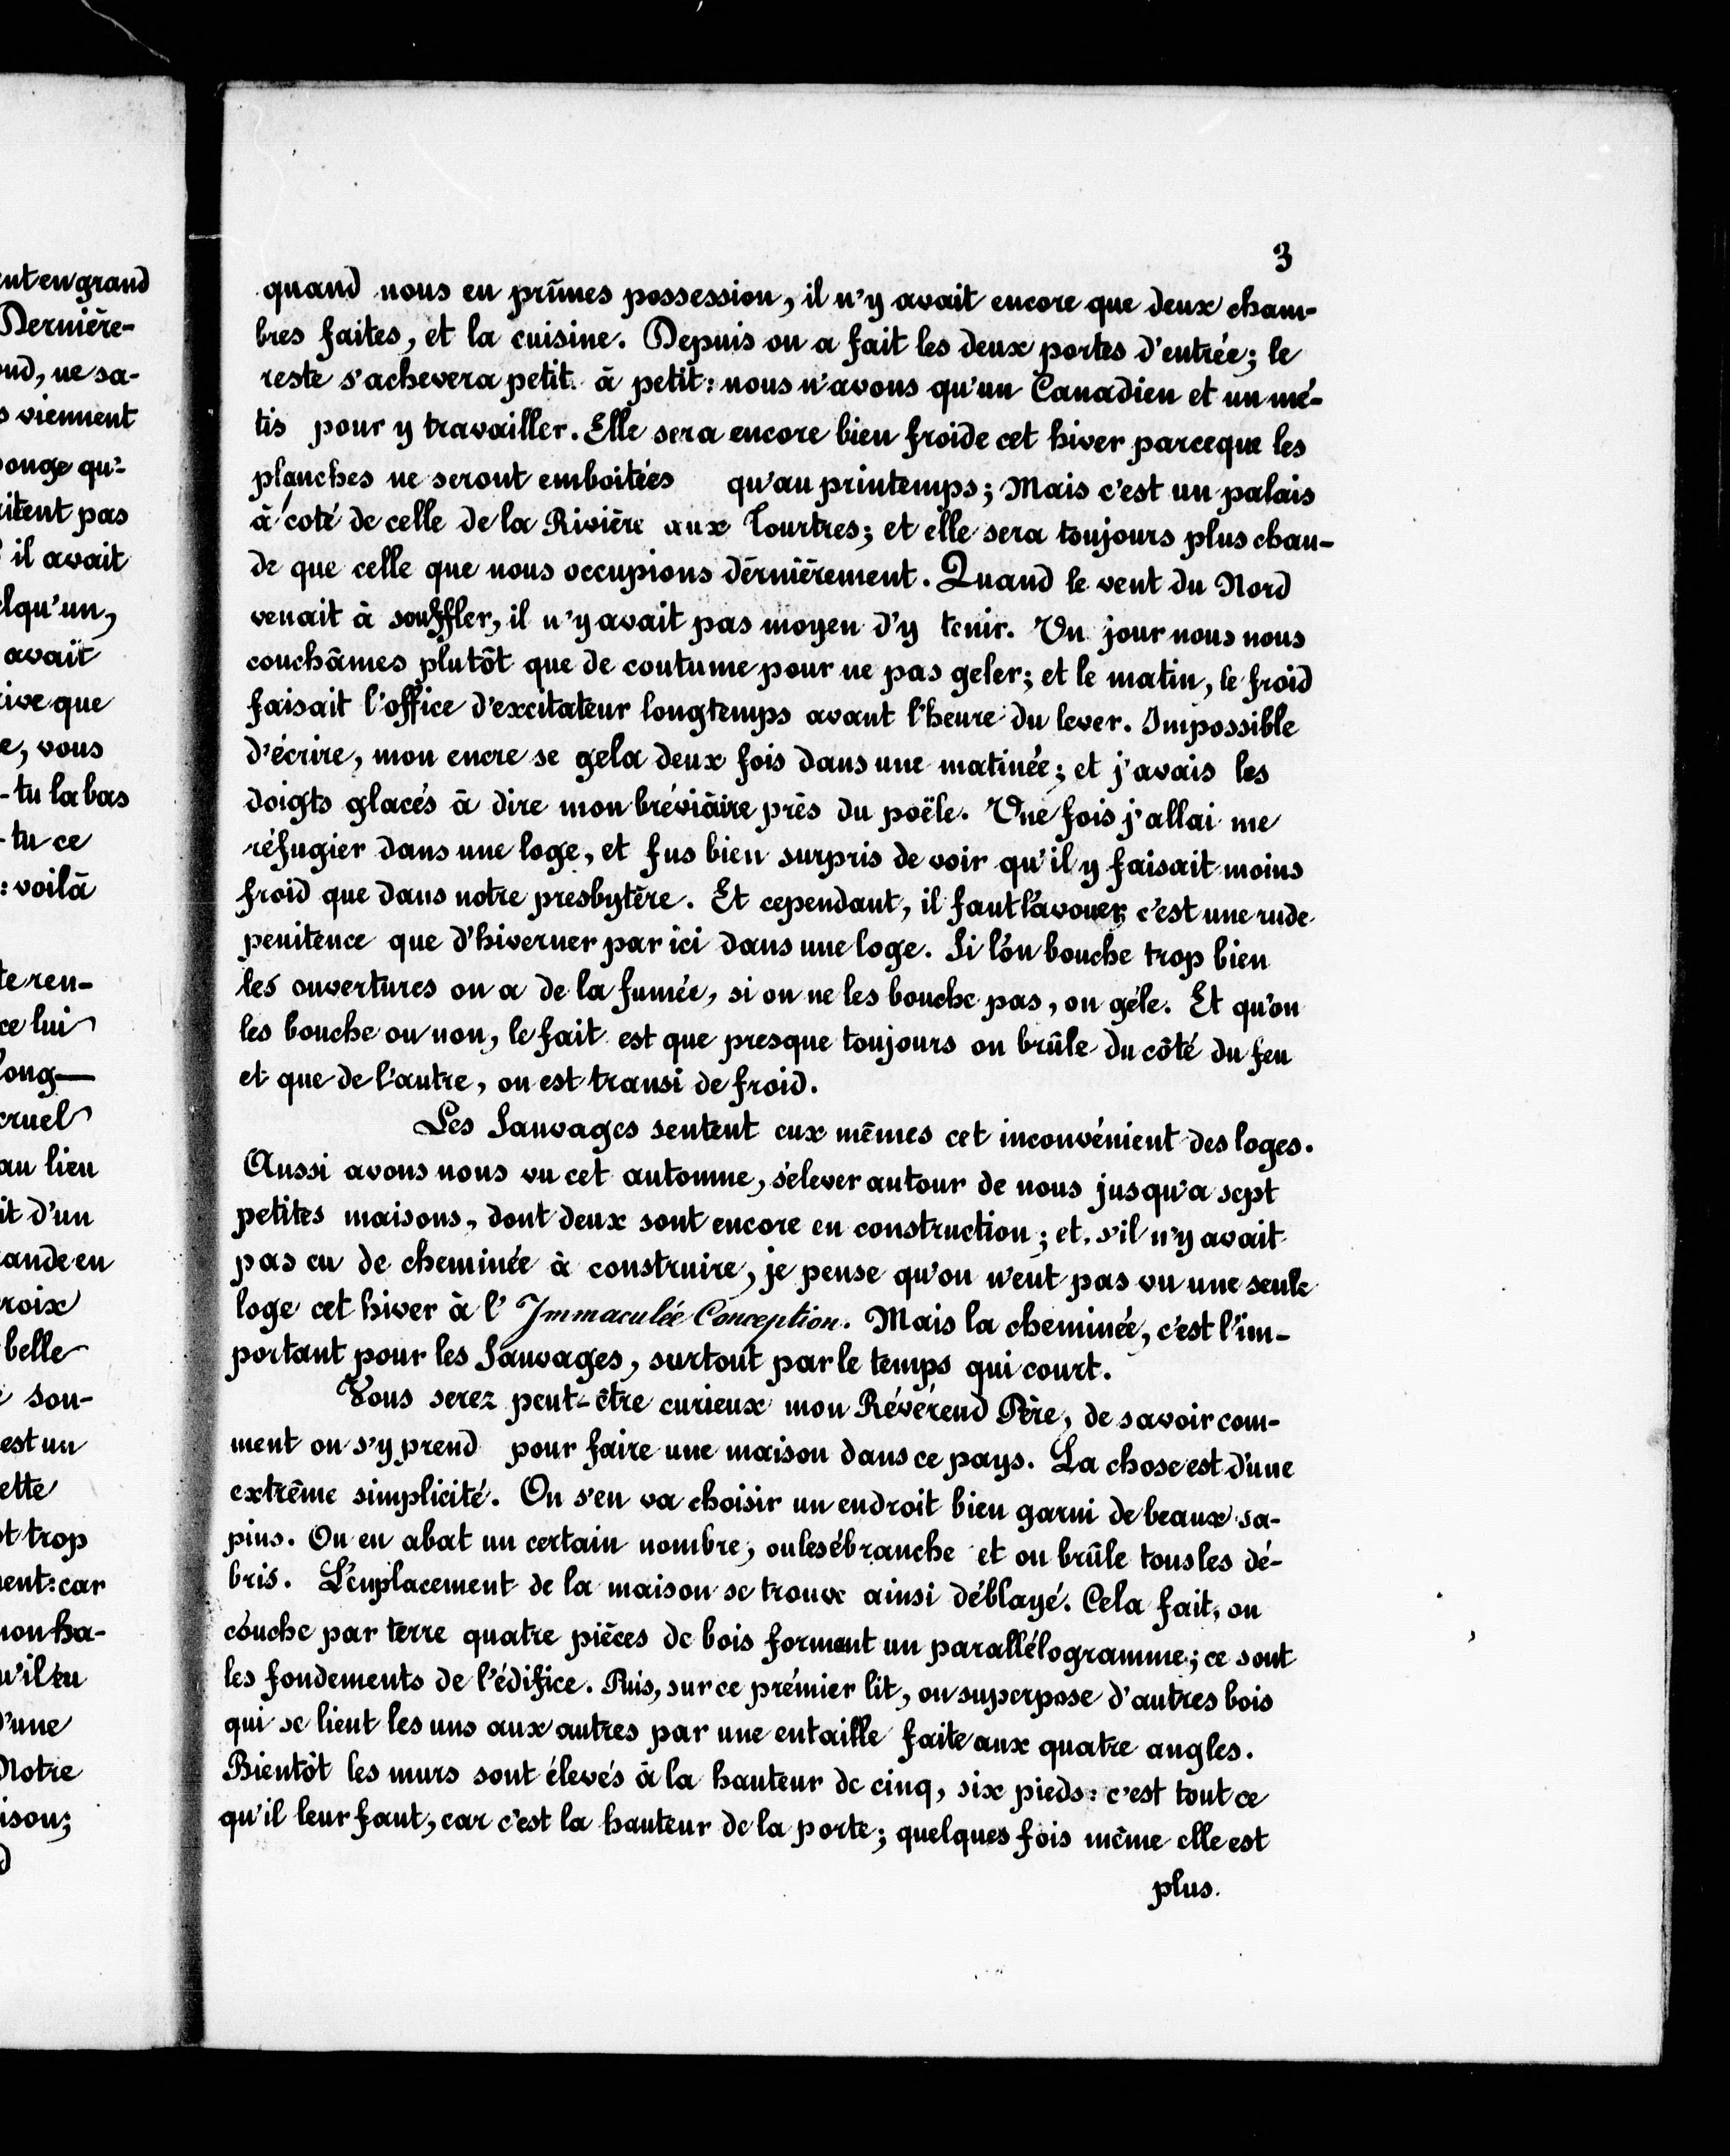 ent en grand
Dernière-
ond, ne sa-
s viennent
onge qu'-
itent pas
il avait
elqu'un,
avait
ive que
e, vous
-tu la bas
-tu ce
: voilà
te ren-
ce lui
long—
cruel
au lieu
it d'un
ande en
roix
belle
e sou-
est un
ette
ot trop
ent: car
non ha-
u'il eu
d'une
Notre
ison;
d
3
quand nous en prîmes possession, il n'y avait encore que deux cham-
bres faites, et la cuisine. Depuis on a fait les deux portes d'entrée; le
reste s'achevera petit à petit: nous n'avons qu'un Canadien et un mé-
tis pour y travailler. Elle sera encore bien froide cet hiver parceque les
planches ne seront emboitées qu'au printemps; Mais c'est un palais
à coté de celle de la Rivière aux Tourtres; et elle sera toujours plus chau-
de que celle que nous occupions dérnièrement. Quand le vent du Nord
venait à souffler, il n'y avait pas moyen d'y tenir. Un jour nous nous
couchâmes plutôt que de coutume pour ne pas geler; et le matin, le froid
faisait l'office d'excitateur longtemps avant l'heure du lever. Impossible
d'écrire, mon encre se gela deux fois dans une matinée; et j'avais les
doigts glacés à dire mon bréviaire près du poële. Une fois j'allai me
réfugier dans une loge, et fus bien surpris de voir qu'il y faisait moins
froid que dans notre presbytère. Et cependant, il faut l'avouer, c'est une rude
penitence que d'hiverner par ici dans une loge. Si l'on bouche trop bien
les ouvertures on a de la fumée, si on ne les bouche pas, on géle. Et qu'on
les bouche ou non, le fait est que presque toujours on brûle du côté du feu
et que de l'autre, on est transi de froid.
Les Sauvages sentent eux mêmes cet inconvénient des loges.
Aussi avons nous vu cet automne, s'elever autour de nous jusqu'a sept
petites maisons, dont deux sont encore en construction; et, s'il n'y avait
pas eu de cheminée à construire, je pense qu'on n'eut pas vu une seule
loge cet hiver à l'Immaculée Conception. Mais la cheminée, c'est l'im-
portant pour les Sauvages, surtout par le temps qui court.
Vous serez peut-être curieux mon Révérend Père, de savoir com-
ment on s'y prend pour faire une maison dans ce pays. La chose est d'une
extrême simplicité. On s'en va choisir un endroit bien garni de beaux sa-
pins. On en abat un certain nombre, on les ébranche et on brûle tous les dé-
bris. L'enplacement de la maison se trouve ainsi déblayé. Cela fait, on
couche par terre quatre pièces de bois formant un parallélogramme; ce sont
les fondements de l'édifice. Puis, sur ce prémier lit, on superpose d'autres bois
qui se lient les uns aux autres par une entaille faite aux quatre angles.
Bientôt les murs sont élevés à la hauteur de cinq, six pieds: c'est tout ce
qu'il leur faut, car c'est la hauteur de la porte; quelques fois même elle est
plus.